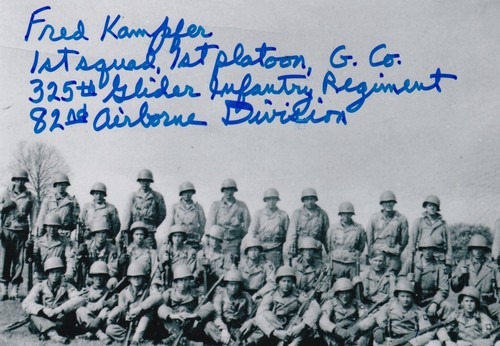 Fred Kampfer
1st squad, 1st platoon, G. Co.
325th Glider Infantry Regiment
82nd Airborne Division